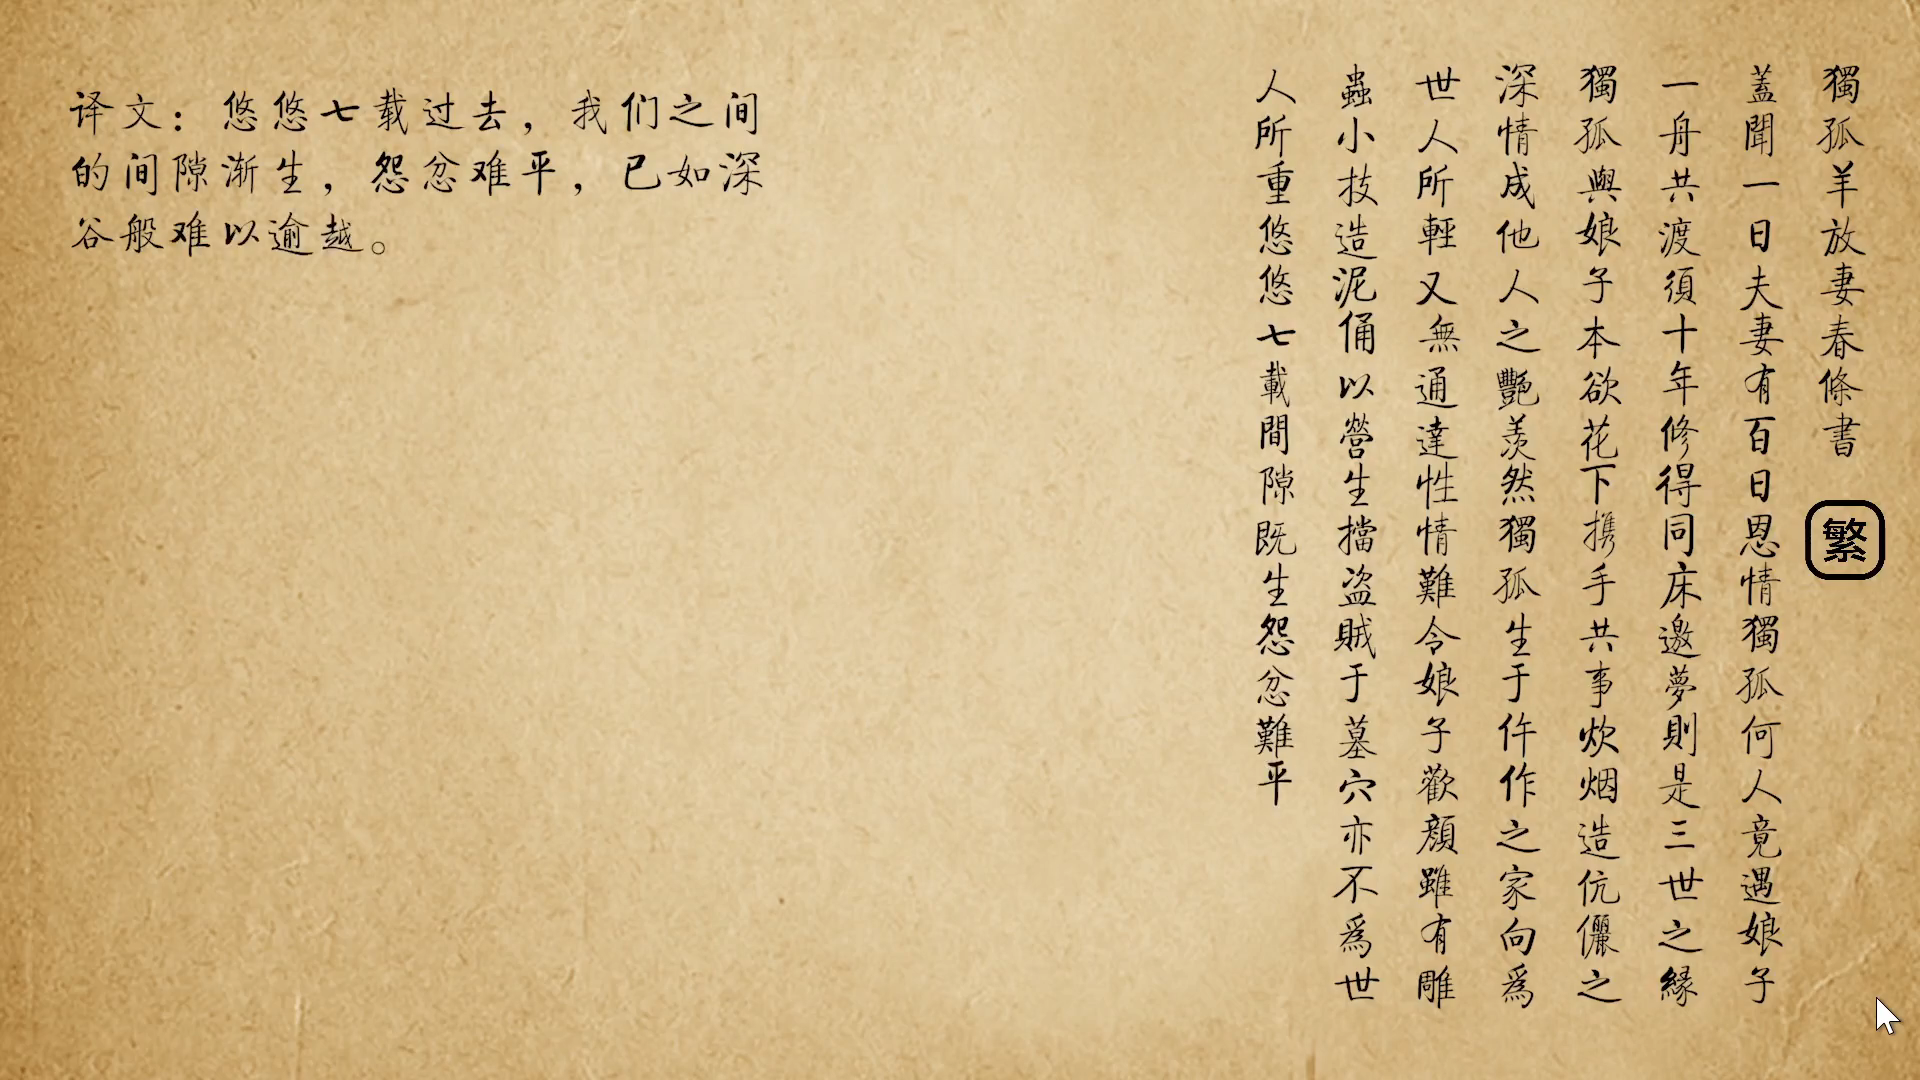 獨孤羊放妻春條書
蓋聞一日夫妻有百日恩情獨孤何人竟遇娘子
一舟共渡須十年修得同床邀夢則是三世之緣
獨孤與娘子本欲花下携手共事炊烟造伉儷之
深情成他人之艷羨然獨孤生于仵作之家向為
世人所輕又無通達性情難令娘子歡顏雖有雕
蟲小技造泥俑以營生擋盜賊于墓穴亦不為世
人所重悠悠七載間隙既生怨忿難平
繁
译文：悠悠七载过去，我们之间
的间隙渐生，怨忿难平，已如深
谷般难以逾越。